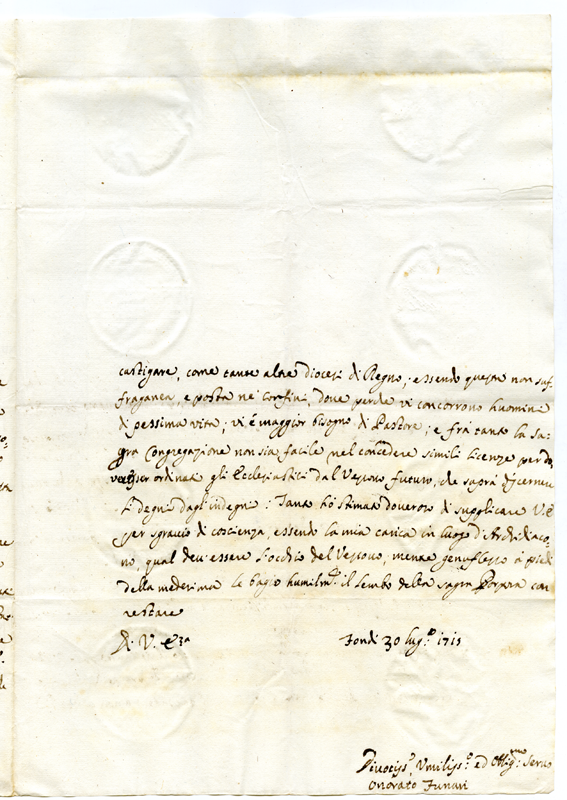 castigare, come tante altre diocesi di Regno; essendo questa non suf
fraganea, e posta nei Confini, dove perche vi concorrono huomini
di pessima vita; vi è maggior bisogno di Pastore; e frà tanto la Sa,
gra Congregazione non sia facile nel concedere simili licenze per do,
ver esser ordinati gli Ecclesiastici dal Vescovo futuro, che saprà discernere
li degni dagl'indegni: Tanto hò stimato doveroso di supplicare V. E.
per sgravio di coscienza, essendo la mia carica in luogo d'Archidiaco,
no, qual dev'essere l'occhio del Vescovo, mentre genuflesso à piedi
della medesima le bagio humilm.e il lembo della sagra Porpora con
restare
D. V. E.za Fondi 30 lug.o 1715
Divotiss.o Umiliss.o ed Obbig.mo Servo
Onorato Funari